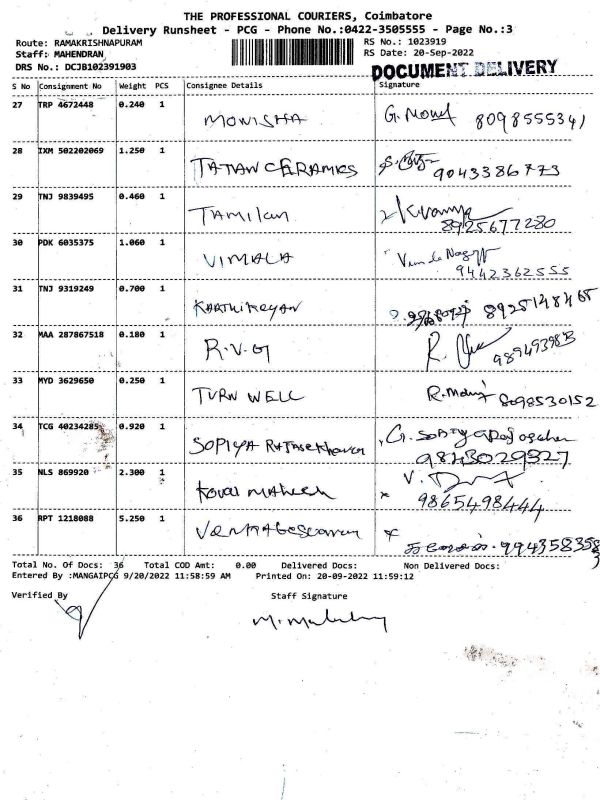 THE PROFESSIONAL COURIERS, Coimbatore
Delivery Runsheet - PCG - Phone No.:0422-3505555 - Page No.:3
Route: RAMAKRISHNAPURAM RS No.: 1023919
Staff: MAHENDRAN RS Date: 20-Sep-2022
DRS No.: DCJB102391903 DOCUMENT DELIVERY
S No Consignment No Weight PCS Consignee Details Signature
27 TRP 4672448 0.240 1 MONISHA 8098555341
28 IXM 502202069 1.250 1 TATIAN CERAMICS 9043386773
29 TNJ 9839495 0.460 1 TAMILAN 8925677280
30 PDK 6035375 1.060 1 VIMALA 9442362555
31 TNJ 9319249 0.700 1 KARTHIKEYAN 8925148465
32 MAA 287867518 0.180 1 R.V.G
33 MYD 3629650 0.250 1 TURN WELL 8098530152
34 TCG 40234285 0.920 1 SOPIYA 9843029327
35 NLS 869920 2.300 1 9865498444
36 RPT 1218088 5.250 1
Total No. Of Docs: 36 Total COD Amt: 0.00 Delivered Docs: Non Delivered Docs:
Entered By :MANGAIPCG 9/20/2022 11:58:59 AM Printed On: 20-09-2022 11:59:12
Verified By Staff Signature